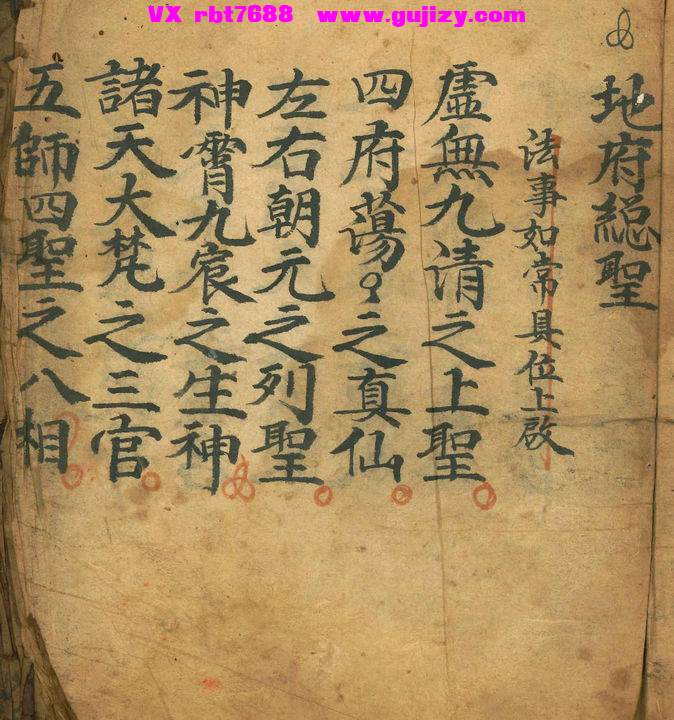 VX rbt7688 www.gujizy.com
地府総聖
法事如常具位上啟
虛無九清之上聖
四府蕩々之真仙
左右朝元之列聖
神霄九宸之生神
諸天大梵之三官
五師四聖之八相